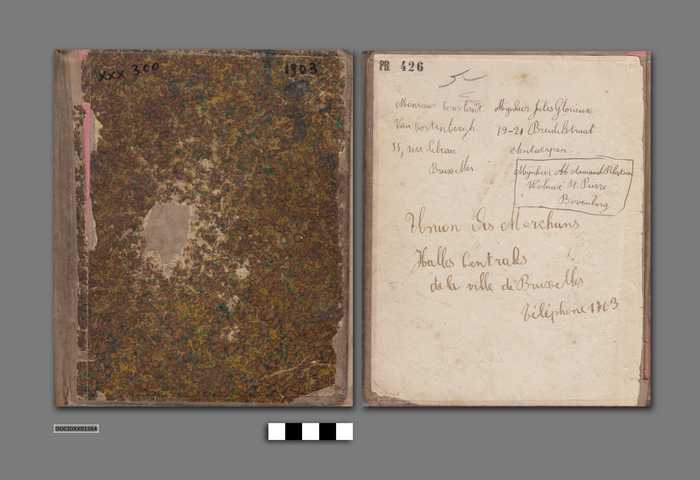 xxx 300
1903
PR 426
5
Monsieur Constant
Van Oostenbergh
35, rue Lebeau
Bruxelles
Mynheer Jules Glorieux
19-21 Breidelstraat
Antwerpen
Mynheer
Woluwe St. Pierre
Bovenberg
Union des Marchans
Halles Centrales
de la ville de Bruxelles
Téléphone 1763